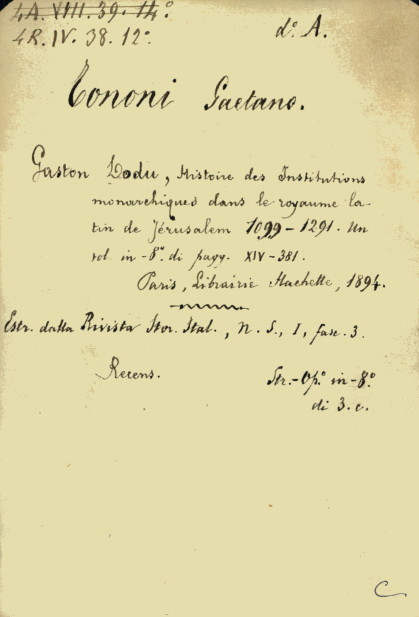 4A. VIII. 39. 14°
4R. IV. 38. 12°. d°. A.
Tononi Gaetano.
Gaston Dodu, Histoire des Institutions
monarchiques dans le royaume la-
tin de Jérusalem 1099-1291. Un
vol. in-8°. di pagg. XIV-381.
Paris, Librairie Hachette, 1894.
Estr. dalla Rivista Stor. Ital., N. S., I, fasc. 3.
Recens.
Str.-Op° in-8°
di 3. c.
C